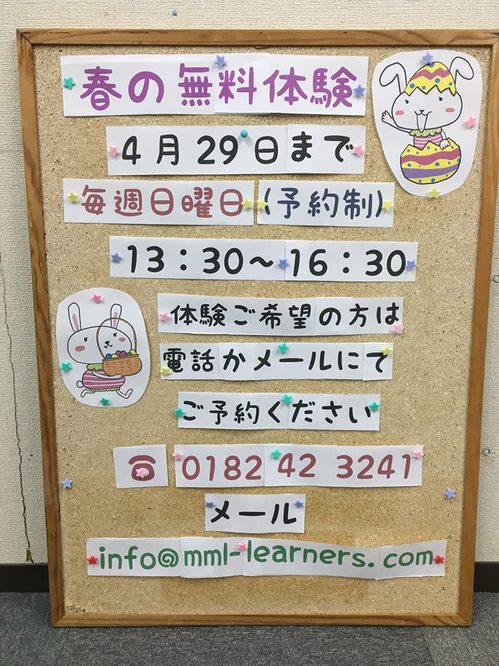 春の無料体験
4月29日まで
毎週日曜日(予約制)
13:30〜16:30
体験ご希望の方は
電話かメールにて
ご予約ください
☎ 0182 42 3241
メール
info@mml-learners.com